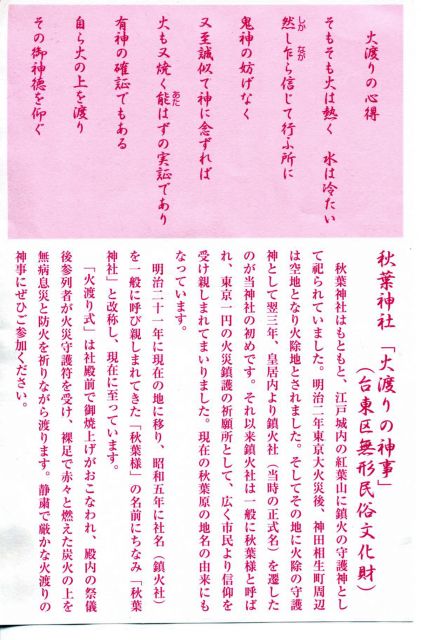 火渡りの心得
そもそも火は熱く　水は冷たい
然し乍ら信じて行ふ所に
鬼神の妨げなく
又至誠似て神に念ずれば
火も又焼く能はずの実証であり
有神の確証でもある
自ら火の上を渡り
その御神徳を仰ぐ
秋葉神社　「火渡りの神事」
（台東区無形民俗文化財）
秋葉神社はもともと、江戸城内の紅葉山に鎮火の守護神とし
て祀られていました。明治二年東京大火災後、神田相生町周辺
は空地となり火除地とされました。そしてその地に火除の守護
神として翌三年、皇居内より鎮火社（当時の正式名）を遷した
のが当神社の初めです。それ以来鎮火社は一般に秋葉様と呼ば
れ、東京一円の火災鎮護の祈願所として、広く市民より信仰を
受け親しまれてまいりました。現在の秋葉原の地名の由来にも
なっています。
明治二十一年に現在の地に移り、昭和五年に社名（鎮火社）
を一般に呼び親しまれてきた「秋葉様」の名前にちなみ「秋葉
神社」と改称し、現在に至っています。
「火渡り式」は社殿前で御焼上げがおこなわれ、殿内の祭儀
後参列者が火災守護符を受け、裸足で赤々と燃えた炭火の上を
無病息災と防火を祈りながら渡ります。静粛で厳かな火渡りの
神事にぜひご参加ください。